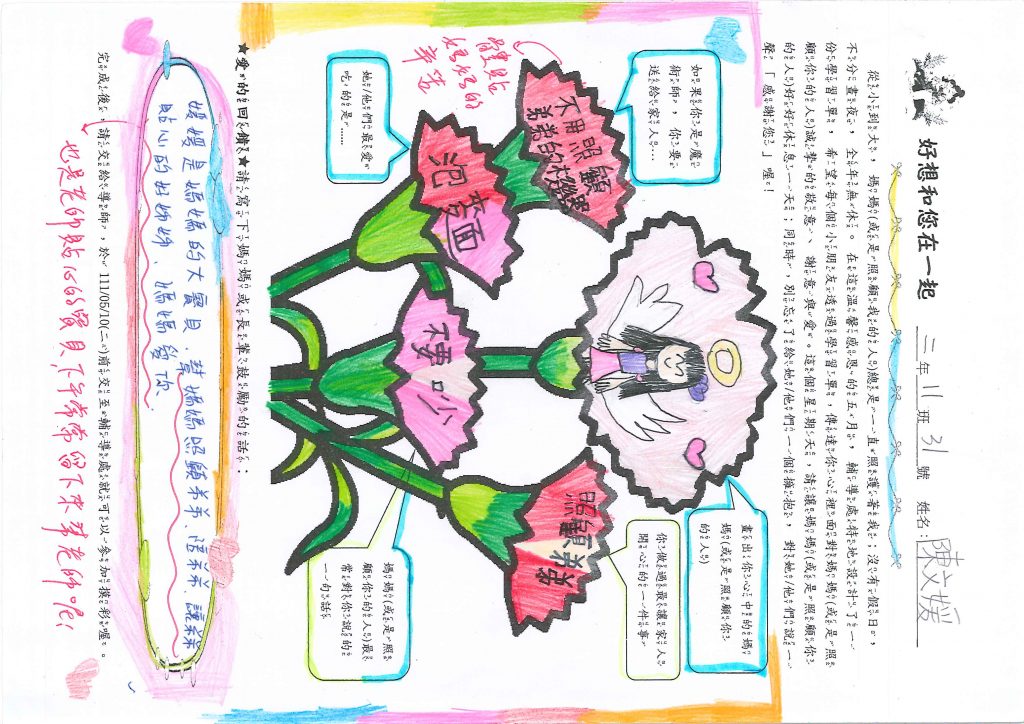 好想和您在一起 二年11班31號 姓名：陳文媛
從小到大，媽媽(或是照顧我的人)總是一直照護著我；沒有假日，
不分晝夜，全年無休。在這溫馨感恩的五月，輔導處特地設計了一
份學習單，希望每個小朋友透過學習單，傳達你心裡面對媽媽(或是照
顧你的人)誠摯的敬意、謝意與愛。這個星期天，請讓媽媽(或是照顧你
的人)好好休息一天；同時，別忘了給她/他們一個擁抱，對她/他們說一
聲「感謝您」喔！
如果你是魔
術師，你要
送給家人…
不用照顧
弟弟的機器
畫出你心中的媽
媽(或是照顧你
的人)
你做過最讓家人
開心的一件事
照顧弟弟
她/他們最愛
吃的是……
泡麥面
媽媽(或是照
顧你的人)最
常對你說的
一句話
不要口少
媽媽的
辛苦
★愛的回饋★請寫下媽媽或長輩鼓勵的話：
媛媛是媽媽的大寶貝，幫媽媽照顧弟弟、陪弟弟、讓弟弟
貼心的好姊姊，媽媽愛你
完成後，請交給導師，於111/05/10(二)前交至輔導處就可以參加摸彩喔。
也是老師貼心的寶貝，下午常常留下來幫老師呢！